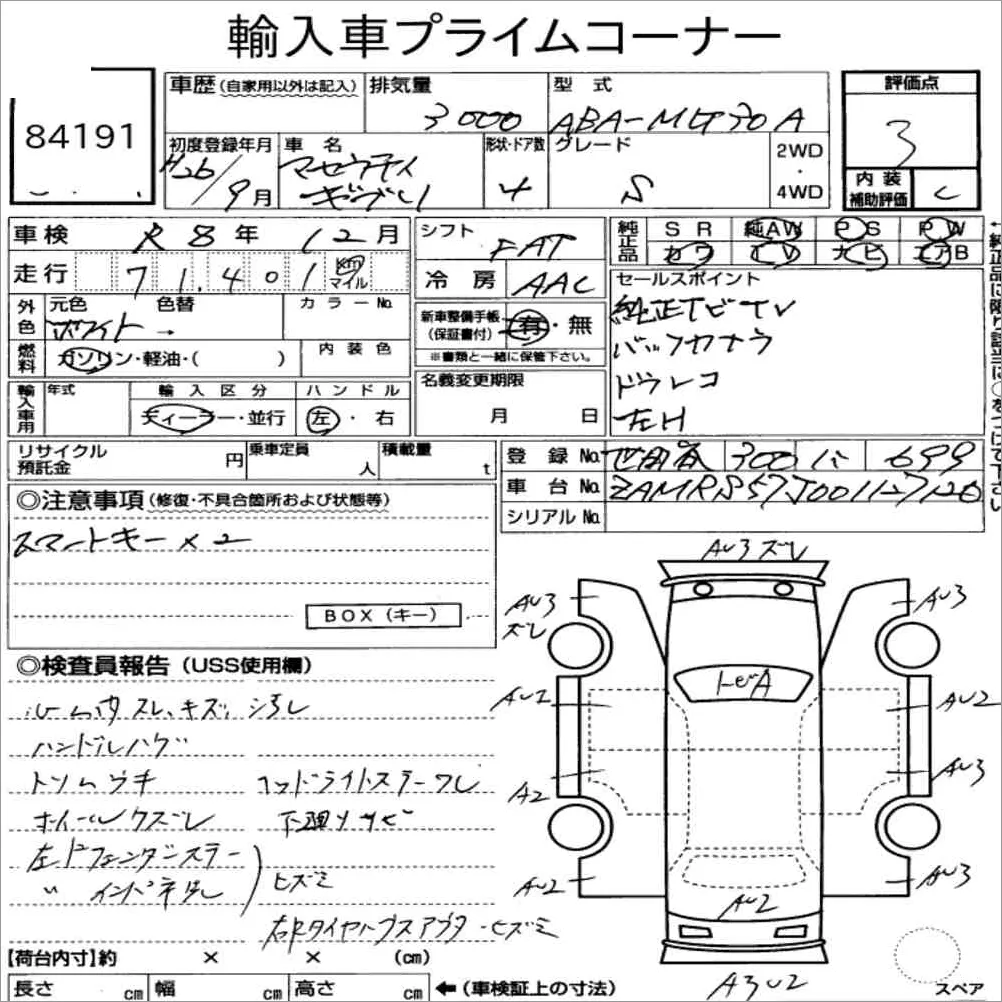 輸入車プライムコーナー
84191
車歴 (自家用以外は記入)
排気量
3000
型式
ABA-MG30A
評価点
3
初度登録年月
H26/9月
車名
マセラティ
ギブリ
形状・ドア数
4
グレード
S
2WD
・
4WD
内装
補助評価
C
車検 R8年12月
走行 71,401 km
マイル
シフト FAT
冷房 AAC
純正品
SR 純AW PS PW
カワ TV ナビ エアB
←純正品に限り該当に○をつけて下さい
外色
元色 色替
ホワイト →
カラーNo.
燃料
ガソリン・軽油・( )
内装色
新車整備手帳
(保証書付)
有・無
※書類と一緒に保管下さい。
セールスポイント
純正ナビTV
バックカメラ
ドラレコ
左H
輸入車用
年式
輸入区分
ディーラー・並行
ハンドル
左・右
名義変更期限
月 日
リサイクル
預託金
円
乗車定員
人
積載量
t
登録No. 世田谷 300 699
車台No. ZAMRS57J001127126
シリアルNo.
◎注意事項 (修復・不具合箇所および状態等)
スマートキー×2
BOX (キー)
◎検査員報告 (USS使用欄)
ルーム内スレ、キズ、汚レ
ハンドルハゲ
トリムウキ ヘッドライトステークレ
ホイールクズレ 下廻りサビ
左Fフェンダーステー
〃 インパネ先 ヒズミ
右Rタイヤハウスアウタ・ヒズミ
AU3 ズレ
AU3
ズレ
AU3
トビA
AU2
AU2
A2
AU3
AU2
AU3
AU2
A3U2
スペア
【荷台内寸】約 × × (cm)
長さ cm 幅 cm 高さ cm ←(車検証上の寸法)